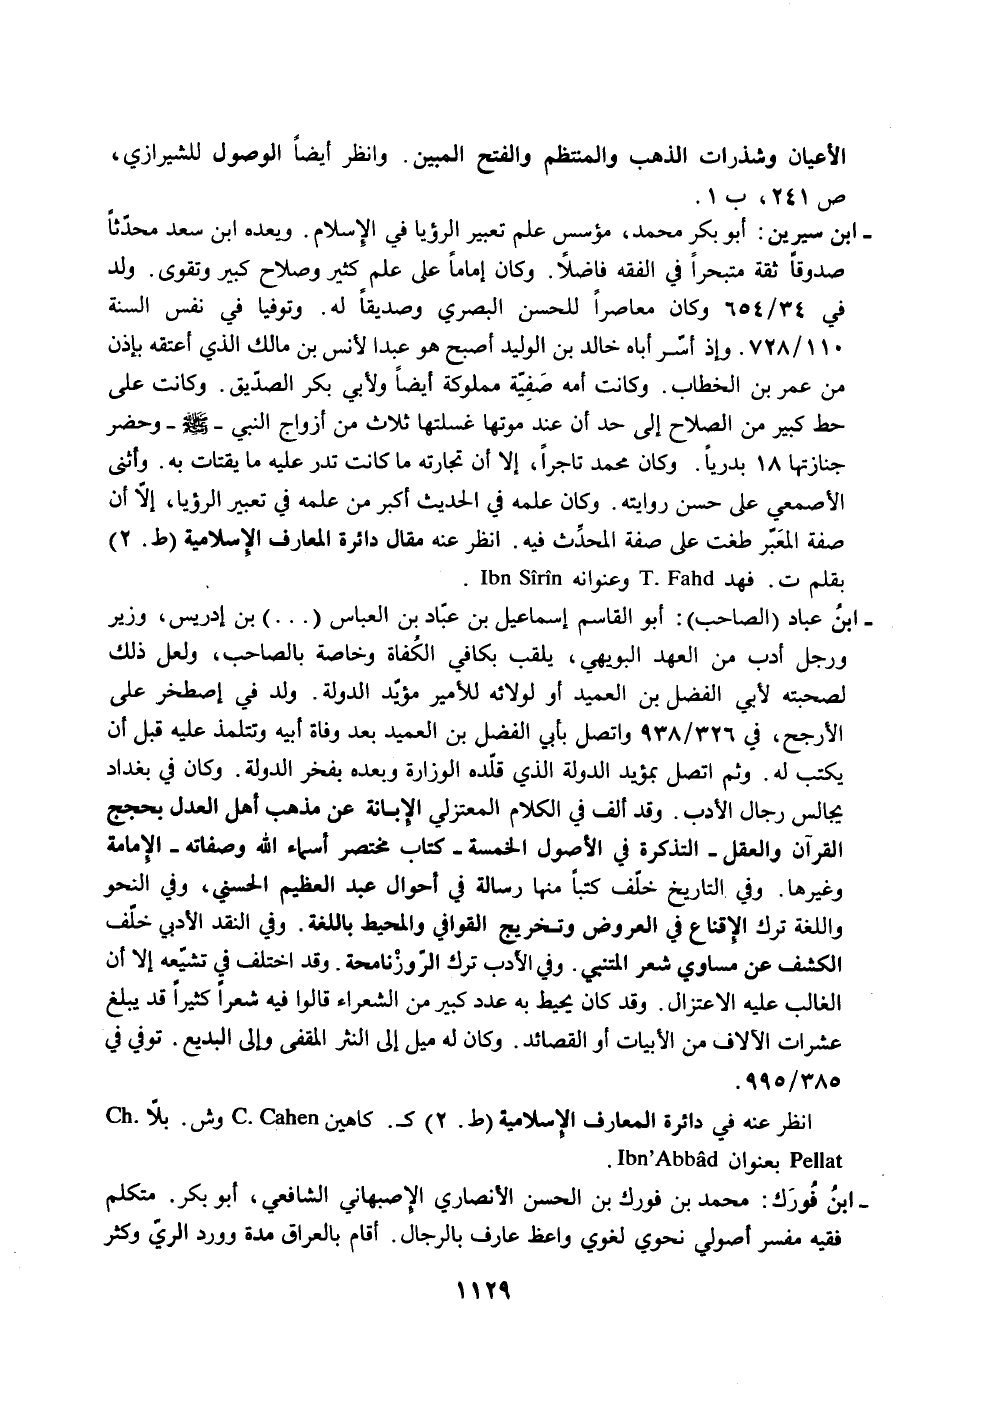 الأعيان وشذرات الذهب والمنتظم والفتح المبين. وانظر أيضاً الوصول للشيرازي،
ص ٢٤١، ب ١.
ـ ابن سيرين: أبو بكر محمد، مؤسس علم تعبير الرؤيا في الإسلام. ويعده ابن سعد محدّثاً
صدوقاً ثقة متبحراً في الفقه فاضلاً. وكان إماماً على علم كثير وصلاح كبير وتقوى. ولد
في ٦٥٤/٣٤ وكان معاصراً للحسن البصري وصديقاً له. وتوفيا في نفس السنة
٧٢٨/١١٠. وإذ أسّر أباه خالد بن الوليد أصبح هو عبدا لأنس بن مالك الذي أعتقه بإذن
من عمر بن الخطاب. وكانت أمه صَفِيّة مملوكة أيضاً ولأبي بكر الصدّيق. وكانت على
حظ كبير من الصلاح إلى حد أن عند موتها غسلتها ثلاث من أزواج النبي ـ ﷺ ـ وحضر
جنازتها ١٨ بدرياً. وكان محمد تاجراً، إلا أن تجارته ما كانت تدر عليه ما يقتات به. وأثنى
الأصمعي على حسن روايته. وكان علمه في الحديث أكبر من علمه في تعبير الرؤيا، إلّا أن
صفة المعَبّر طغت على صفة المحدِّث فيه. انظر عنه مقال دائرة المعارف الإسلامية (ط. ٢)
بقلم ت. فهد T. Fahd وعنوانه Ibn Sîrîn .
ـ ابنُ عباد (الصاحب): أبو القاسم إسماعيل بن عبّاد بن العباس (...) بن إدريس، وزير
ورجل أدب من العهد البويهي، يلقب بكافي الكُفاة وخاصة بالصاحب، ولعل ذلك
لصحبته لأبي الفضل بن العميد أو لولائه للأمير مؤيّد الدولة. ولد في إصطخر على
الأرجح، في ٩٣٨/٣٢٦ واتصل بأبي الفضل بن العميد بعد وفاة أبيه وتتلمذ عليه قبل أن
يكتب له. وثم اتصل بمؤيد الدولة الذي قلّده الوزارة وبعده بفخر الدولة. وكان في بغداد
يجالس رجال الأدب. وقد ألف في الكلام المعتزلي الإبـانة عن مذهب أهل العدل بحجج
القرآن والعقل ـ التذكرة في الأصول الخمسة ـ كتاب مختصر أسماء الله وصفاته ـ الإمامة
وغيرها. وفي التاريخ خلّف كتباً منها رسالة في أحوال عبد العظيم الحسني، وفي النحو
واللغة ترك الإقناع في العروض وتـخريج القوافي والمحيط باللغة. وفي النقد الأدبي خلّف
الكشف عن مساوي شعر المتنبي. وفي الأدب ترك الرّوزْنامجة. وقد اختلف في تشيّعه إلا أن
الغالب عليه الاعتزال. وقد كان يحيط به عدد كبير من الشعراء قالوا فيه شعراً كثيراً قد يبلغ
عشرات الآلاف من الأبيات أو القصائد. وكان له ميل إلى النثر المقفى وإلى البديع. توفي في
٩٩٥/٣٨٥.
انظر عنه في دائرة المعارف الإسلامية (ط. ٢) كـ. كاهين C. Cahen وش. بلّا Ch.
Pellat بعنوان Ibn'Abbâd.
ـ ابنُ فُورَك: محمد بن فورك بن الحسن الأنصاري الإصبهاني الشافعي، أبو بكر. متكلم
فقيه مفسر أصولي نحوي لغوي واعظ عارف بالرجال. أقام بالعراق مدة وورد الريّ وكثر
١١٢٩